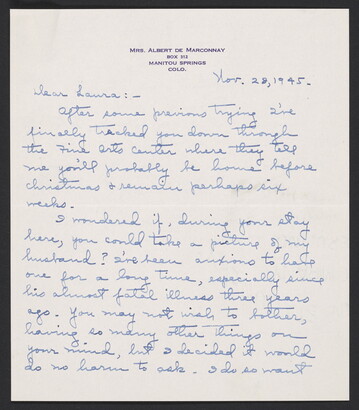 MRS. ALBERT DE MARCONNAY
BOX 312
MANITOU SPRINGS
COLO.
Nov. 28, 1945.
Dear Laura:-
After some previous trying I've
finally tracked you down through
the Fine Arts Center where they tell
me you'll probably be home before
Christmas & remain perhaps six
weeks.
I wondered if, during your stay
here, you could take a picture of my
husband? I've been anxious to have
one for a long time, especially since
his almost fatal illness three years
ago. You may not wish to bother,
having so many other things on
your mind, but I decided it would
do no harm to ask. I do so want